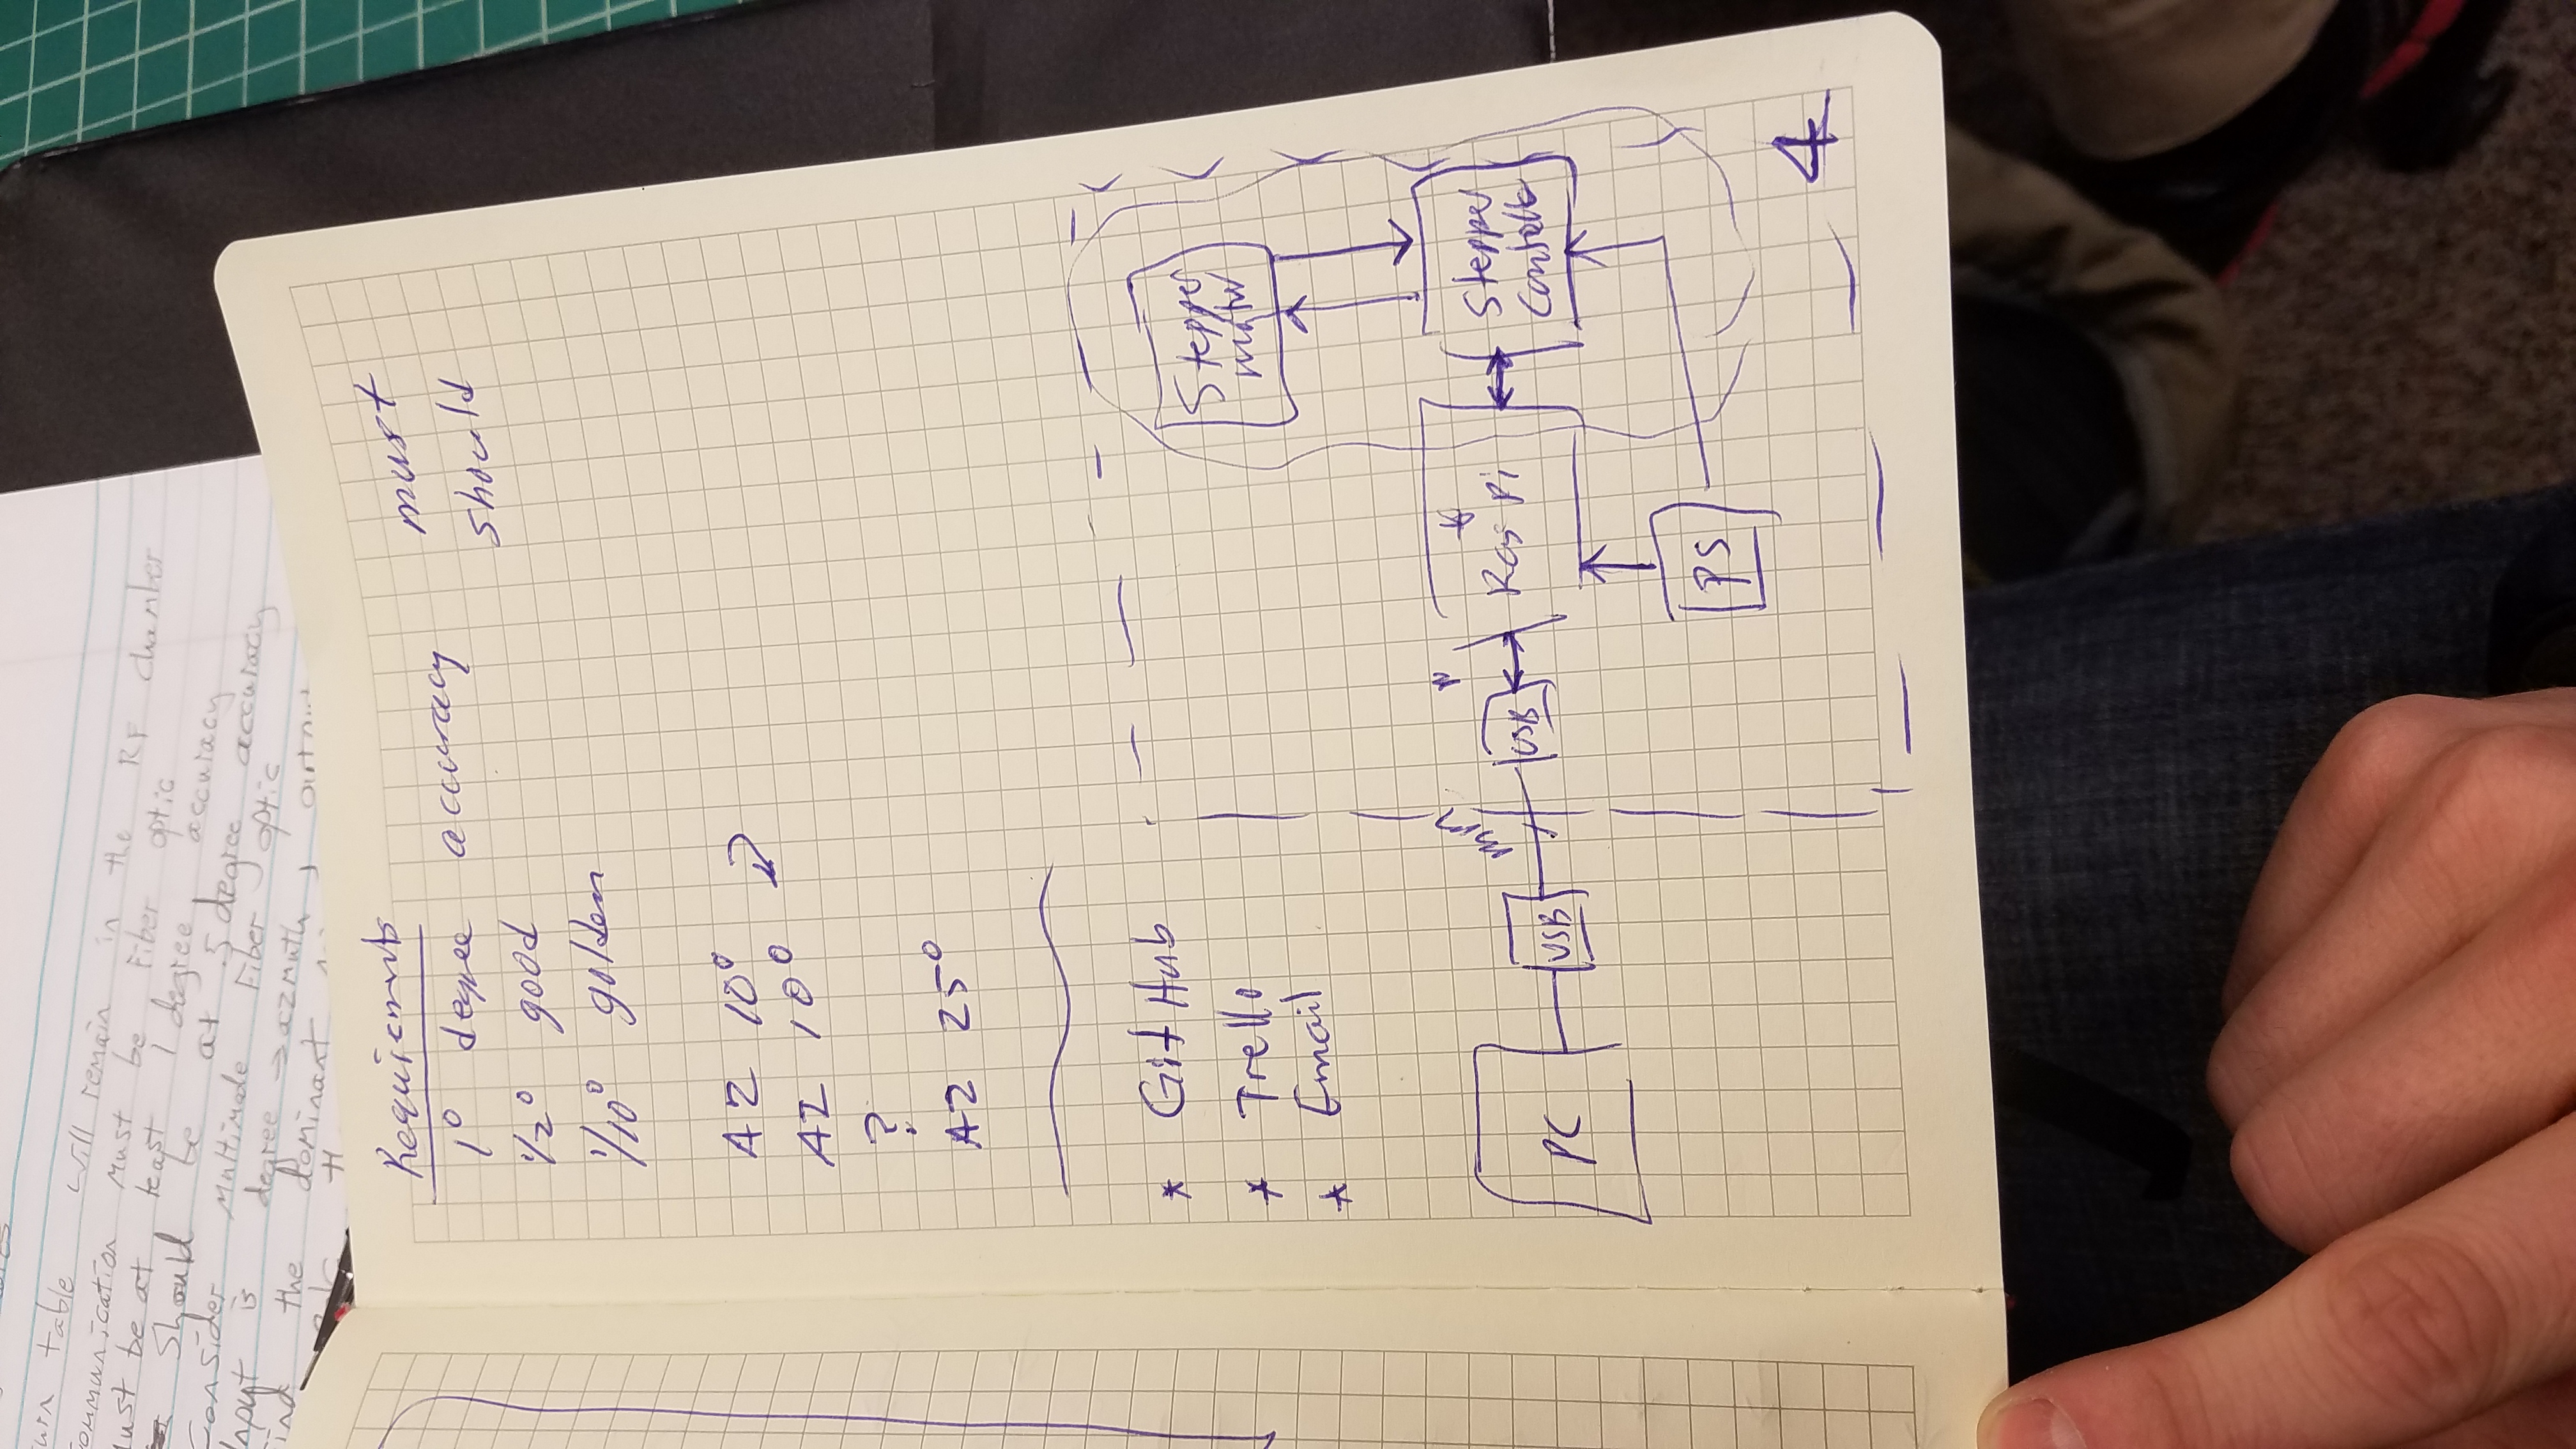 table will remain in the RF chamber
must be Fiber optic
must be at least 1 degree accuracy
Should be at .5 degree accuracy
Consider Multimode Fiber optic
Input is degree → azmuth,
the dominant
Requiemnts
1° degree accuracy must
1/2° good should
1/10° golden
AZ 10°
AZ 10°
?
AZ 25°
* GitHub
* Trello
* Email
Stepper
motor
mm
PC
USB
USB
Ras Pi
Stepper
PS
4